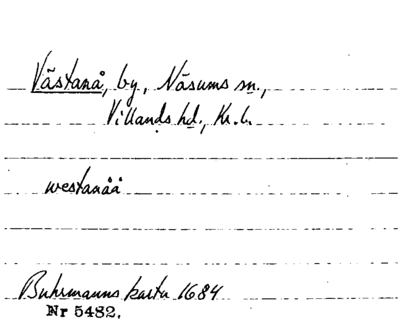 Västanå, by, Näsums sn.,
Villands hd., Kr. l.
westanåå
Buhrmanns karta 1684
Nr 5482.